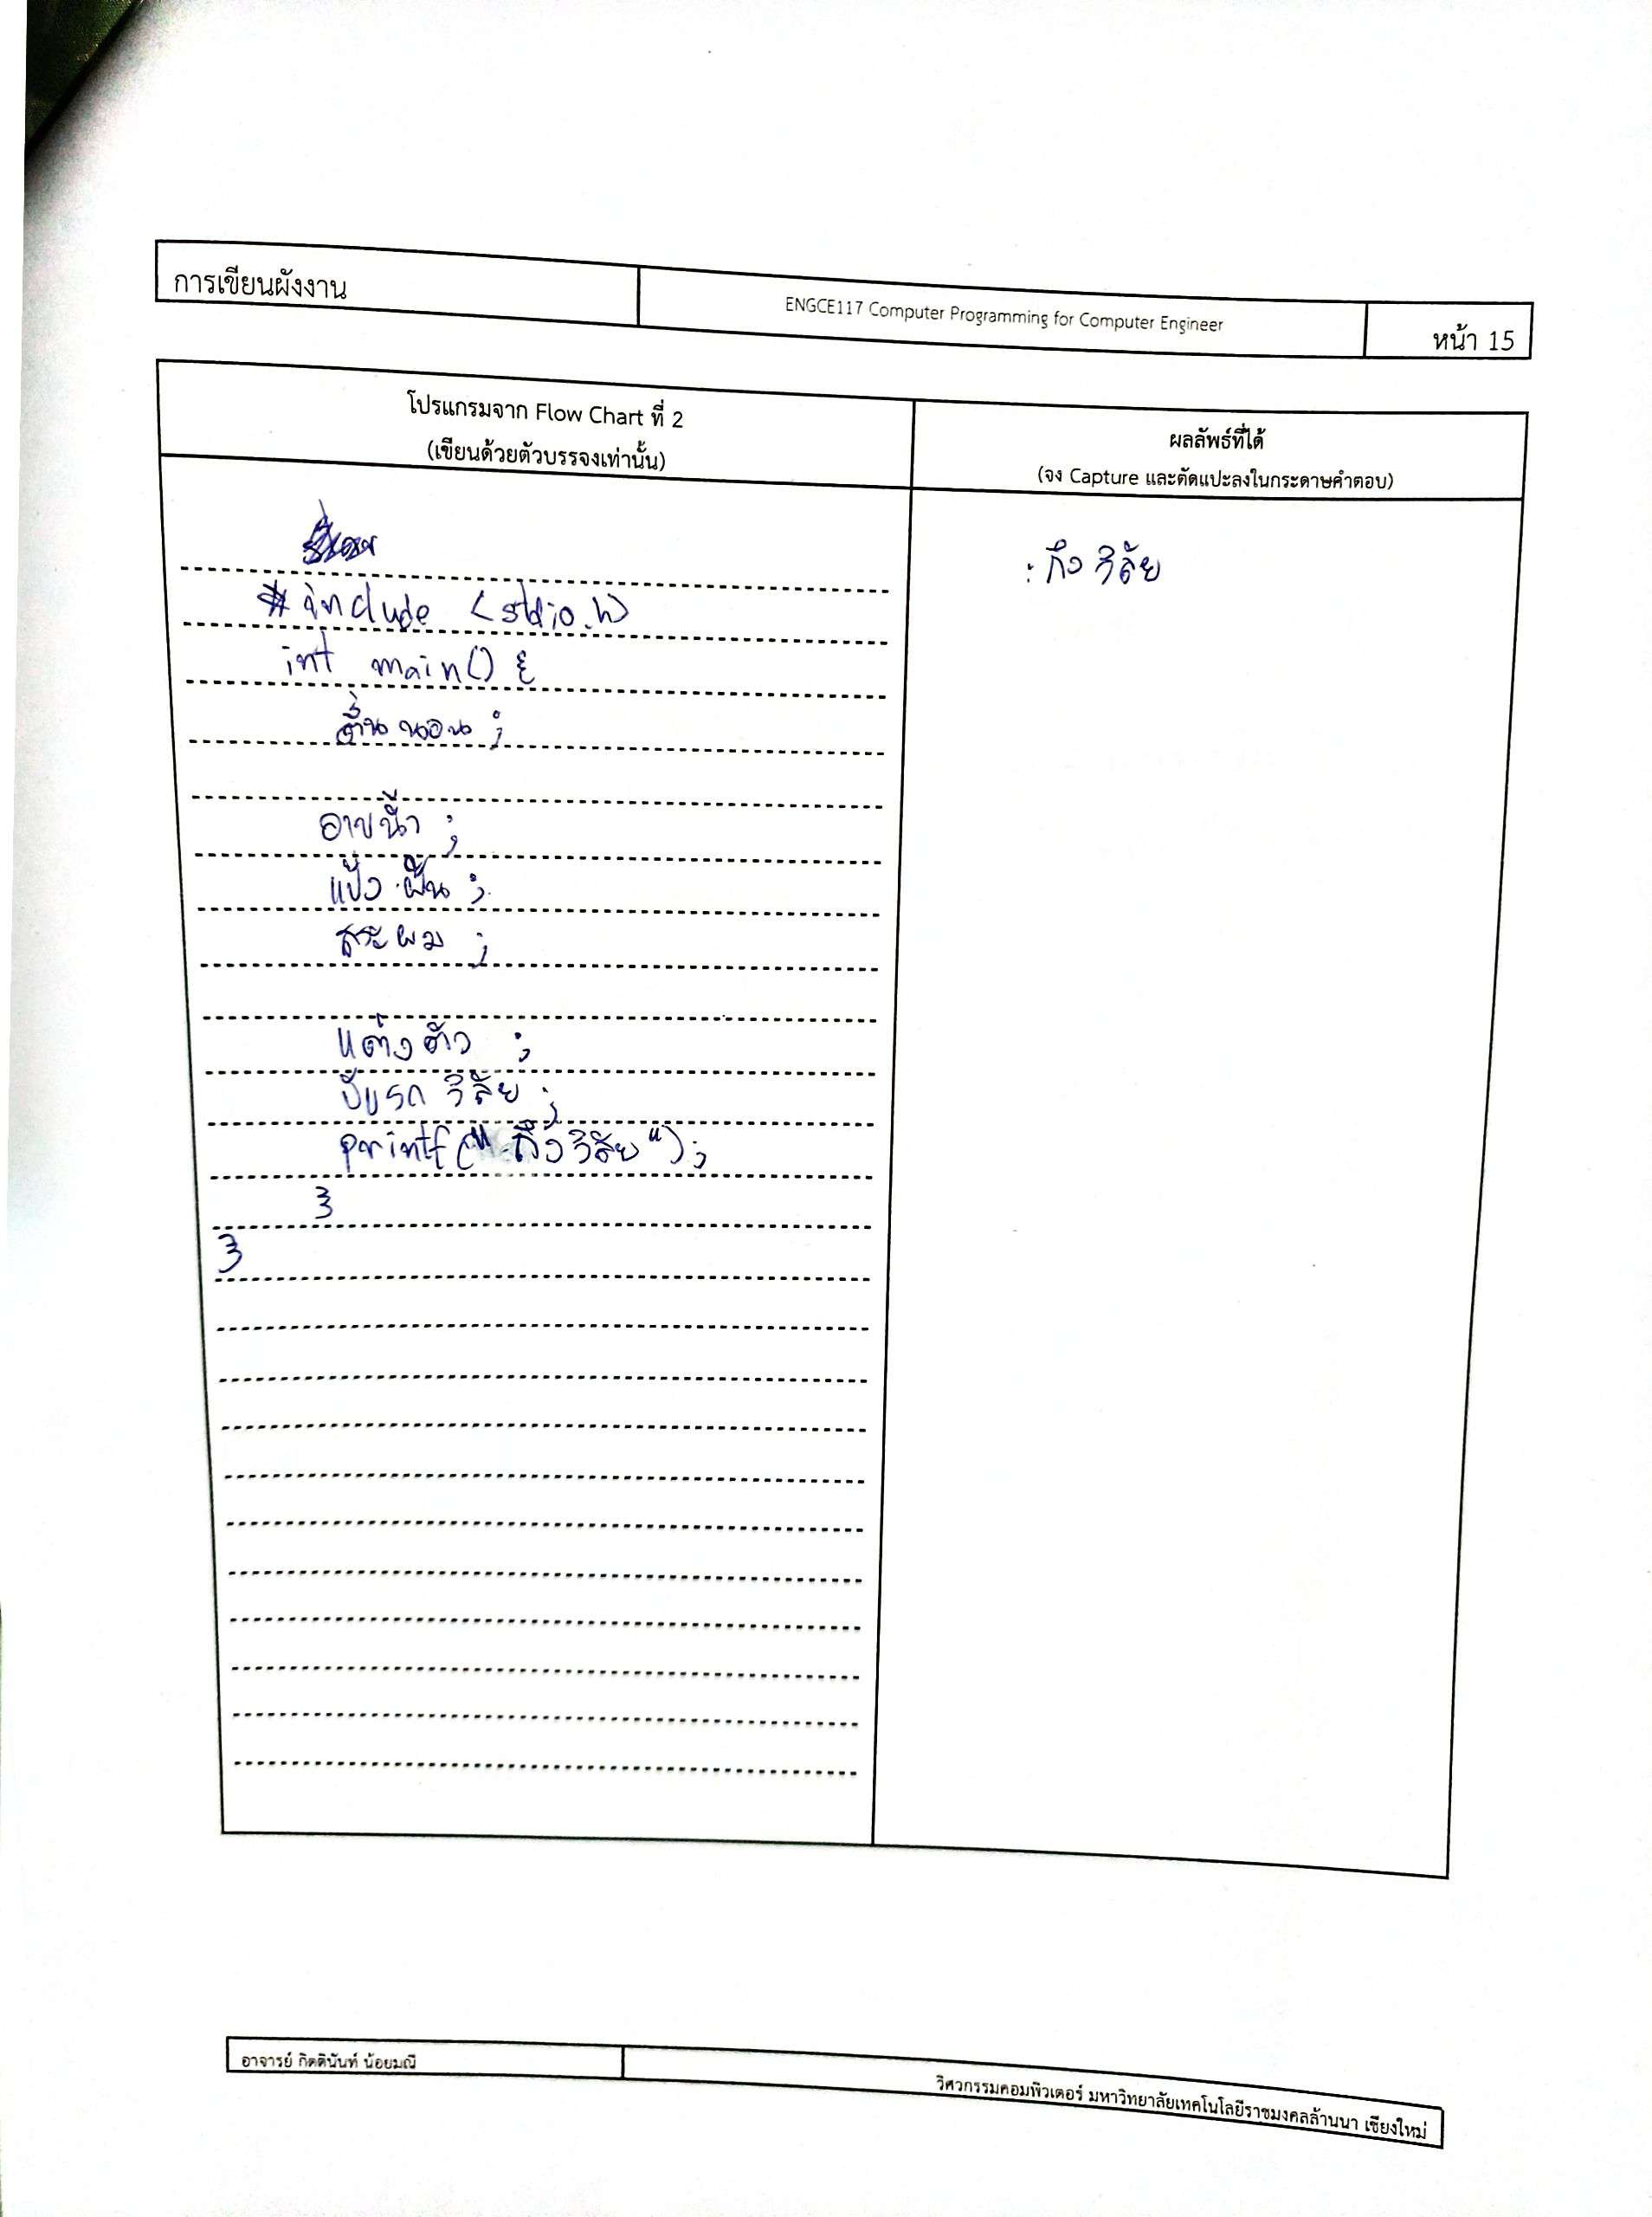 การเขียนผังงาน
ENGCE117 Computer Programming for Computer Engineer
หน้า 15
โปรแกรมจาก Flow Chart ที่ 2
(เขียนด้วยตัวบรรจงเท่านั้น)
ผลลัพธ์ที่ได้
(จง Capture และตัดแปะลงในกระดาษคำตอบ)
: ถึง วิลัย
#include <stdio.h>
int main() {
ตื่นนอน ;
อาบน้ำ ;
แป้ง ฟัน ;
สระผม ;
แต่งตัว ;
ขับรถ วิลัย ;
printf(" ถึง วิลัย ");
}
}
อาจารย์ กิตตินันท์ น้อยมณี
วิศวกรรมคอมพิวเตอร์ มหาวิทยาลัยเทคโนโลยีราชมงคลล้านนา เชียงใหม่